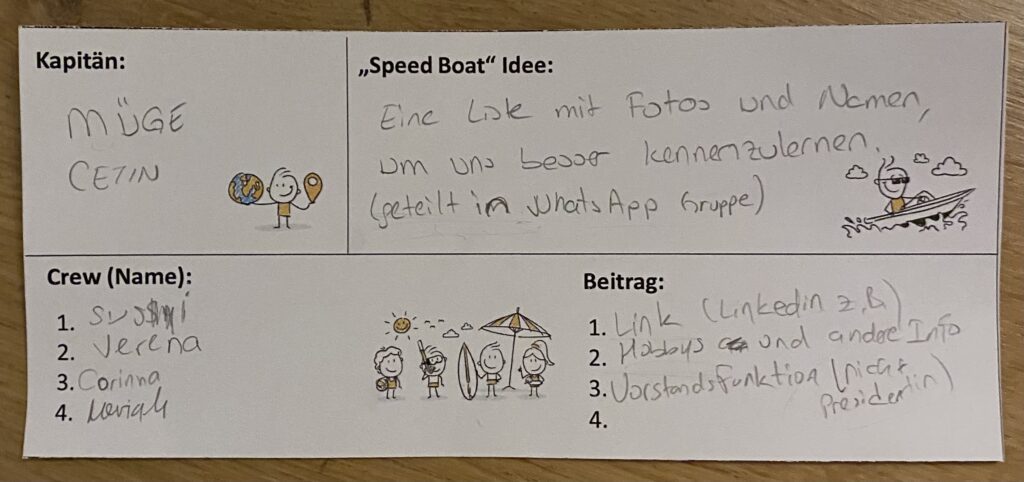 Kapitän:
MÜGE
CETIN
„Speed Boat“ Idee:
Eine Liste mit Fotos und Namen,
um uns besser kennenzulernen.
(geteilt in WhatsApp Gruppe)
Crew (Name):
1.
2. Verena
3. Corinna
4.
Beitrag:
1. Link (Linkedin z.B)
2. Hobbys und andere Info
3. Vorstandsfunktion (nicht
Presidentin)
4.